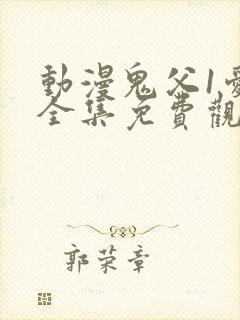 動漫鬼父1愛
全集免費觀
郭荣章